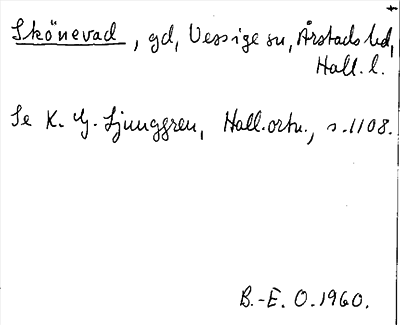 Skönevad, gd, Vessige sn, Årstads hd,
Hall. l.
Se K. G. Ljunggren, Hall. ortn., s. 1108.
B.-E. O. 1960.